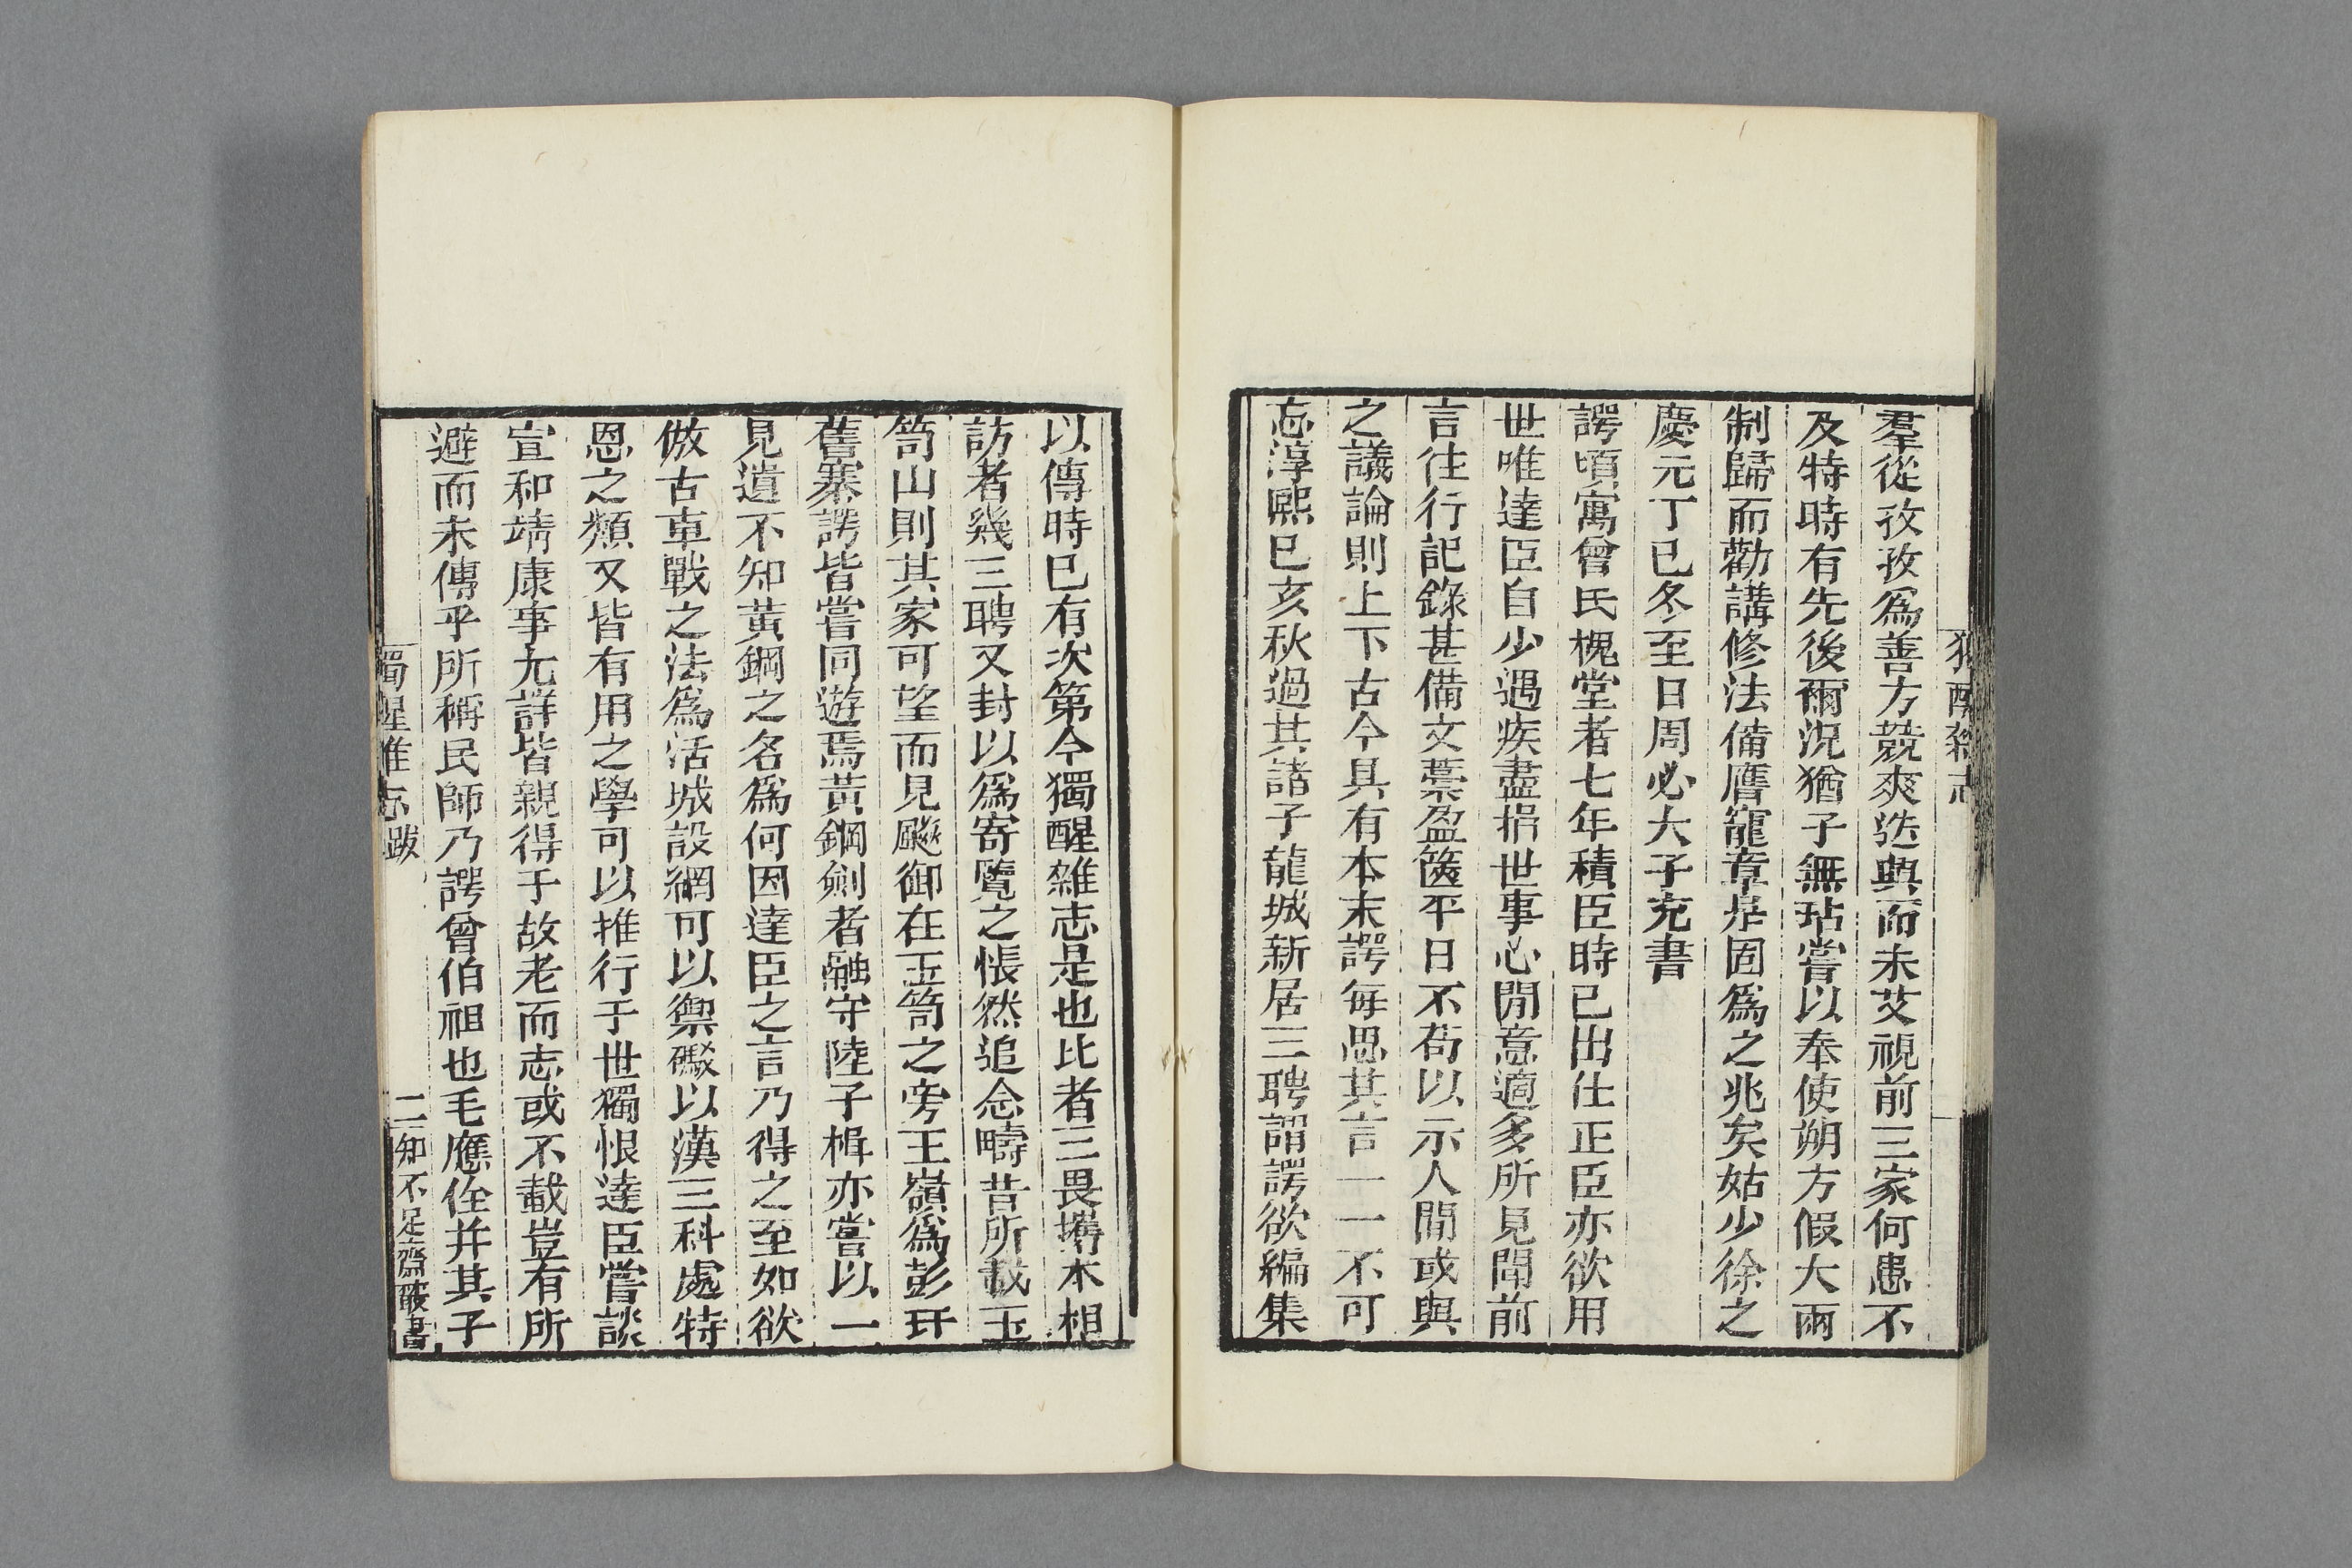 羣從孜孜爲善方競爽迭興而未艾視前三家何患不
及特時有先後爾況猶子無玷嘗以奉使朔方假大兩
制歸而勸講修法備膺寵章是固爲之兆矣姑少徐之
慶元丁巳冬至日周必大子充書
諤頃寓曾氏槐堂者七年積臣時已出仕正臣亦欲用
世唯達臣自少遇疾盡捐世事心閒意適多所見聞前
言往行記錄甚備文藁盈篋平日不苟以示人間或與
之議論則上下古今具有本末諤每思其言一一不可
忘淳熙己亥秋過其諸子龍城新居三聘謂諤欲編集
以傳時已有次第今獨醒雜志是也比者三畏摶本相
訪者幾三聘又封以爲寄覽之悵然追念疇昔所載玉
笥山則其家可望而見飈御在玉笥之旁王嶺爲彭玕
舊寨諤皆嘗同遊焉黃鋼劍者融守陸子楫亦嘗以一
見遺不知黃鋼之名爲何因達臣之言乃得之至如欲
倣古車戰之法爲活城設網可以禦礮以漢三科處特
恩之類又皆有用之學可以推行于世獨恨達臣嘗談
宣和靖康事尤詳皆親得于故老而志或不載豈有所
避而未傳乎所稱民師乃諤曾伯祖也毛應佺并其子
獨醒雜志跋 二 知不足齋叢書